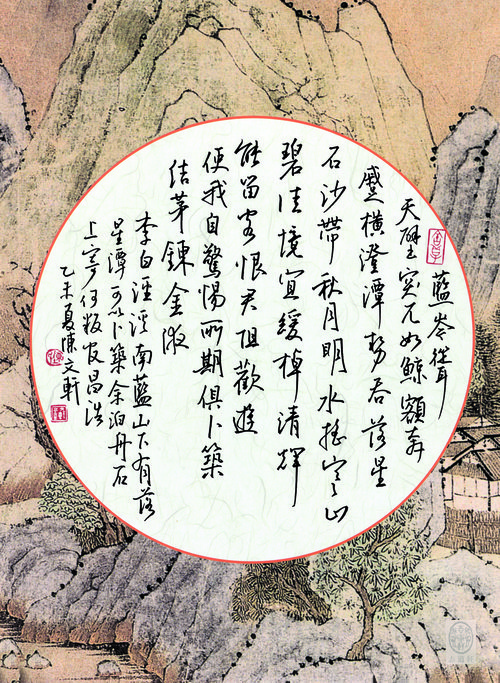 藍岑聳
天壁突兀如鯨額奔
蹙橫澄潭勢吞落星
石沙帶秋月明水搖寒山
碧佳境宜緩棹清輝
能留客恨君阻歡遊
使我自驚惕所期俱卜築
結茅鍊金液
李白涇溪南藍山下有落
星潭可以卜築余泊舟石
上寄何判官昌浩
乙未夏陳文軒